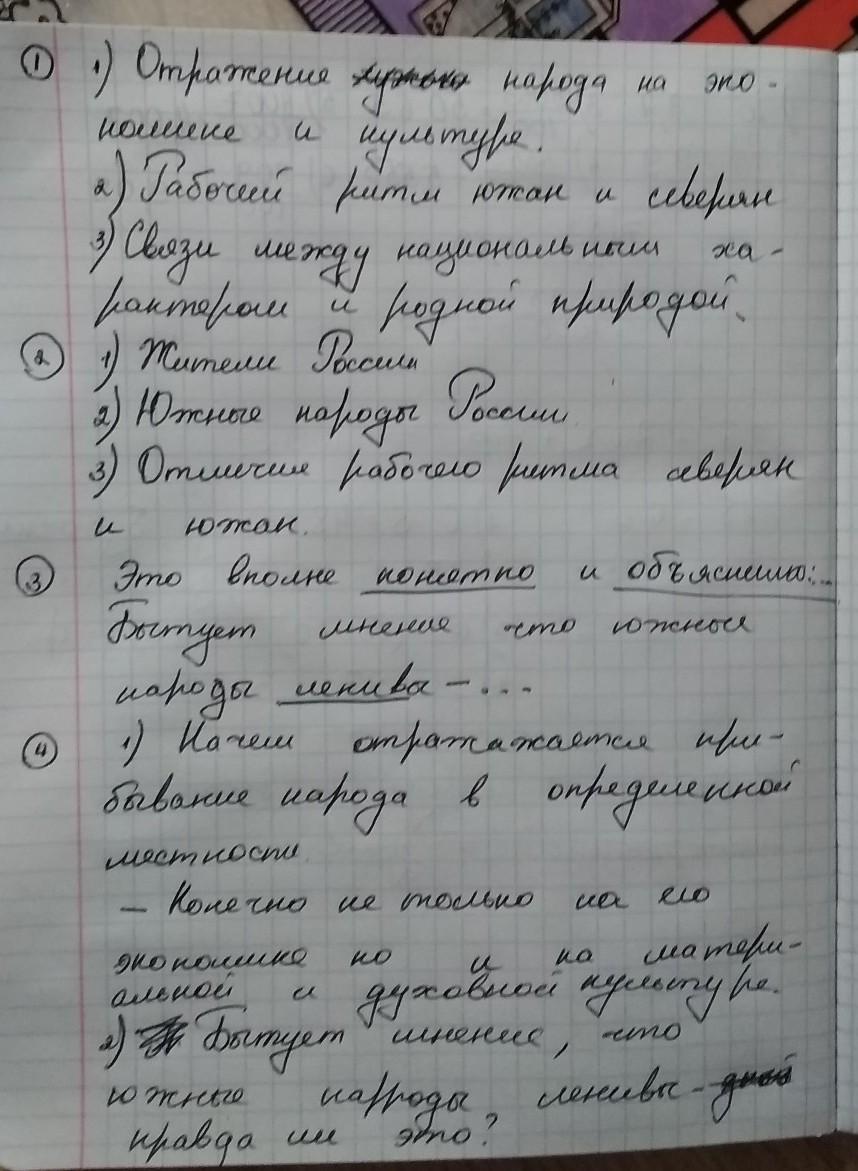 ① 1) Отражение народа на эко-
номике и культуре.
2) Рабочий ритм южан и северян
3) Связи между национальным ха-
рактером и родной природой.
② 1) Жители России
2) Южные народы России
3) Отличие рабочего ритма северян
и южан.
③ Это вполне понятно и объяснимо:..
Бытует мнение что южные
народы ленивы – ...
④ 1) На чем отражажается при-
бывание народа в определенной
местности.
– Конечно не только на его
экономике но и на матери-
альной и духовной культуре.
2) Бытует мнение, что
южные народы ленивы-
правда ли это?